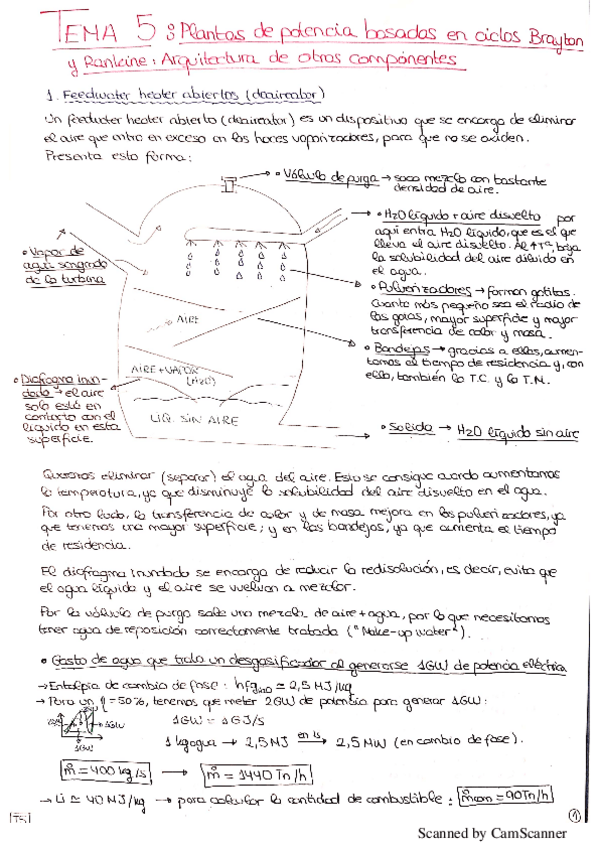 TEMA 5: Plantas de potencia basadas en ciclos Brayton
y Rankine: Arquitectura de otros componentes
1. Feedwater heater abiertos (deaireator)
Un feedwater heater abierto (deaireator) es un dispositivo que se encarga de eliminar
el aire que entra en exceso en los haces vaporizadores, para que no se oxiden.
Presenta esta forma:
• Válvula de purga → saca mezcla con bastante
densidad de aire.
• H2O líquido + aire disuelto por
aquí entra H2O líquido, que es el que
lleva el aire disuelto. Al ↑Tª, baja
la solubilidad del aire diluido en
el agua.
• Vapor de
agua sangrado
de la turbina
• Pulverizadores → forman gotitas.
Cuanto más pequeño sea el radio de
las gotas, mayor superficie y mayor
transferencia de calor y masa.
AIRE
• Bandejas → gracias a ellas, aumen-
tamos el tiempo de residencia y, con
ello, también la T.C. y la T.M.
AIRE + VAPOR
(H2O)
• Diafragma inun-
dado → el aire
solo está en
contacto con el
líquido en esta
superficie.
LIQ. SIN AIRE
• Salida → H2O líquido sin aire
Queremos eliminar (separar) el agua del aire. Esto se consigue cuando aumentamos
la temperatura, ya que disminuye la solubilidad del aire disuelto en el agua.
Por otro lado, la transferencia de calor y de masa mejora en los pulverizadores, ya
que tenemos una mayor superficie; y en las bandejas, ya que aumenta el tiempo
de residencia.
El diafragma inundado se encarga de reducir la redisolución, es decir, evita que
el agua líquida y el aire se vuelvan a mezclar.
Por la válvula de purga sale una mezcla de aire + agua, por lo que necesitamos
tener agua de reposición correctamente tratada ("Make-up water").
• Gasto de agua que trata un desgasificador al generarse 1GW de potencia eléctrica
→ Entalpía de cambio de fase: hfg H2O ≃ 2,5 MJ/kg
→ Para un η = 50%, tenemos que meter 2GW de potencia para generar 1GW:
1GW = 1GJ/s
1GW
1 kg agua → 2,5 MJ en 1s → 2,5 MW (en cambio de fase).
1GW
ṁ = 400 kg/s → ṁ = 1440 Tn/h
→ Li ≃ 40 MJ/kg → para calcular la cantidad de combustible: ṁcom = 90 Tn/h
1
Scanned by CamScanner